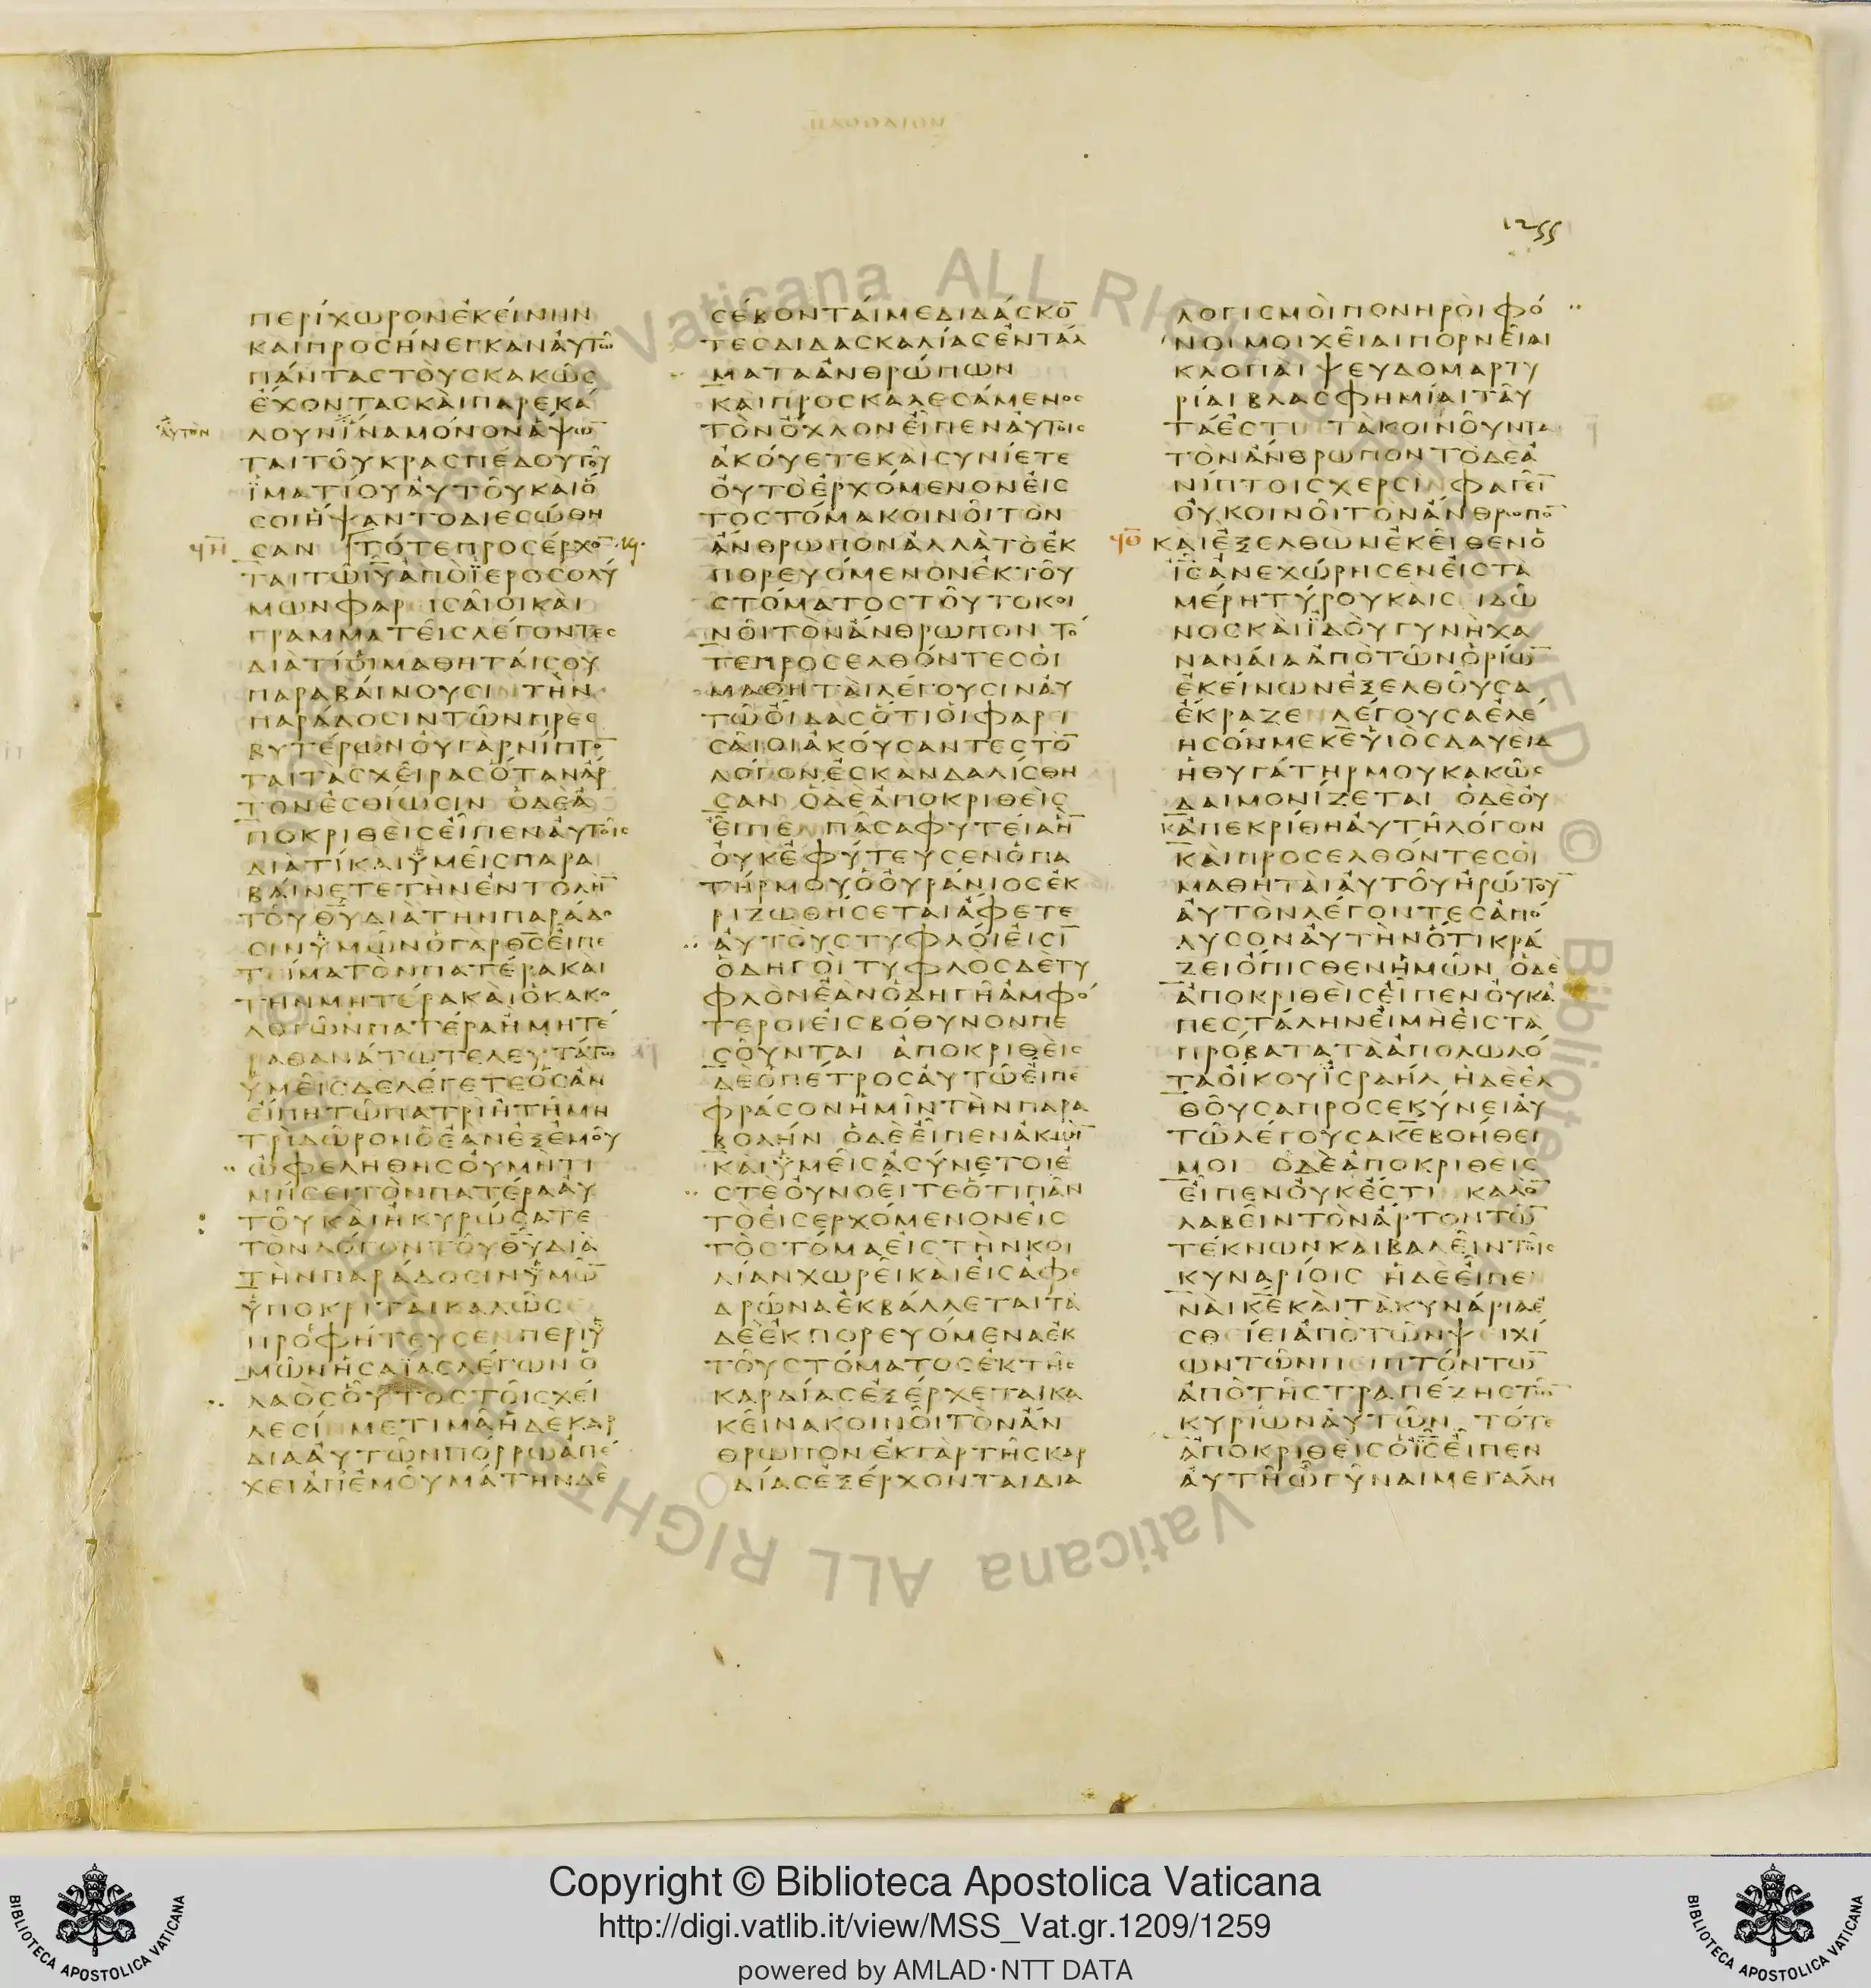 ΜΑΘΘΑΙΟΝ
1255
ΠΕΡΙΧΩΡΟΝΕΚΕΙΝΗΝ
ΚΑΙΠΡΟΣΗΝΕΓΚΑΝΑΥΤΩ
ΠΑΝΤΑΣΤΟΥΣΚΑΚΩΣ
ΕΧΟΝΤΑΣΚΑΙΠΑΡΕΚΑ
αυτον
ΛΟΥΝΙΝΑΜΟΝΟΝΑΨΩ̅
ΤΑΙΤΟΥΚΡΑΣΠΕΔΟΥΤΟΥ
ΙΜΑΤΙΟΥΑΥΤΟΥΚΑΙΟ
ΣΟΙΗΨΑΝΤΟΔΙΕΣΩΘΗ
ΣΑΝ ΤΟΤΕΠΡΟΣΕΡΧΟ̅
ΤΑΙΤΩΙ̅Υ̅ΑΠΟΙΕΡΟΣΟΛΥ
ΜΩΝΦΑΡΙΣΑΙΟΙΚΑΙ
ΓΡΑΜΜΑΤΕΙΣΛΕΓΟΝΤΕΣ
ΔΙΑΤΙΟΙΜΑΘΗΤΑΙΣΟΥ
ΠΑΡΑΒΑΙΝΟΥΣΙΝΤΗΝ
ΠΑΡΑΔΟΣΙΝΤΩΝΠΡΕΣ
ΒΥΤΕΡΩΝΟΥΓΑΡΝΙΠΤΟ̅
ΤΑΙΤΑΣΧΕΙΡΑΣΟΤΑΝΑΡ
ΤΟΝΕΣΘΙΩΣΙΝ ΟΔΕΑ
ΠΟΚΡΙΘΕΙΣΕΙΠΕΝΑΥΤΟΙΣ
ΔΙΑΤΙΚΑΙΥΜΕΙΣΠΑΡΑ
ΒΑΙΝΕΤΕΤΗΝΕΝΤΟΛΗ̅
ΤΟΥΘ̅Υ̅ΔΙΑΤΗΝΠΑΡΑΔΟ
ΣΙΝΥΜΩΝΟΓΑΡΘ̅Σ̅ΕΙΠΕ
ΤΕΙΜΑΤΟΝΠΑΤΕΡΑΚΑΙ
ΤΗΝΜΗΤΕΡΑΚΑΙΟΚΑΚΟ
ΛΟΓΩΝΠΑΤΕΡΑΗΜΗΤΕ
ΡΑΘΑΝΑΤΩΤΕΛΕΥΤΑΤΩ
ΥΜΕΙΣΔΕΛΕΓΕΤΕΟΣΑΝ
ΕΙΠΗΤΩΠΑΤΡΙΗΤΗΜΗ
ΤΡΙΔΩΡΟΝΟΕΑΝΕΞΕΜΟΥ
ΩΦΕΛΗΘΗΣΟΥΜΗΤΙ
ΜΗΣΕΙΤΟΝΠΑΤΕΡΑΑΥ
ΤΟΥΚΑΙΗΚΥΡΩΣΑΤΕ
ΤΟΝΛΟΓΟΝΤΟΥΘ̅Υ̅ΔΙΑ
ΤΗΝΠΑΡΑΔΟΣΙΝΥΜΩ̅
ΥΠΟΚΡΙΤΑΙΚΑΛΩΣΕ
ΠΡΟΦΗΤΕΥΣΕΝΠΕΡΙΥ
ΜΩΝΗΣΑΙΑΣΛΕΓΩΝΟ
ΛΑΟΣΟΥΤΟΣΤΟΙΣΧΕΙ
ΛΕΣΙΝΜΕΤΙΜΑΗΔΕΚΑΡ
ΔΙΑΑΥΤΩΝΠΟΡΡΩΑΠΕ
ΧΕΙΑΠΕΜΟΥΜΑΤΗΝΔΕ
ΣΕΒΟΝΤΑΙΜΕΔΙΔΑΣΚΟ̅
ΤΕΣΔΙΔΑΣΚΑΛΙΑΣΕΝΤΑΛ
ΜΑΤΑΑΝΘΡΩΠΩΝ
ΚΑΙΠΡΟΣΚΑΛΕΣΑΜΕΝΟΣ
ΤΟΝΟΧΛΟΝΕΙΠΕΝΑΥΤΟΙΣ
ΑΚΟΥΕΤΕΚΑΙΣΥΝΙΕΤΕ
ΟΥΤΟΕΡΧΟΜΕΝΟΝΕΙΣ
ΤΟΣΤΟΜΑΚΟΙΝΟΙΤΟΝ
ΑΝΘΡΩΠΟΝΑΛΛΑΤΟΕΚ
ΠΟΡΕΥΟΜΕΝΟΝΕΚΤΟΥ
ΣΤΟΜΑΤΟΣΤΟΥΤΟΚΟΙ
ΝΟΙΤΟΝΑΝΘΡΩΠΟΝ ΤΟ
ΤΕΠΡΟΣΕΛΘΟΝΤΕΣΟΙ
ΜΑΘΗΤΑΙΛΕΓΟΥΣΙΝΑΥ
ΤΩΟΙΔΑΣΟΤΙΟΙΦΑΡΙ
ΣΑΙΟΙΑΚΟΥΣΑΝΤΕΣΤΟ̅
ΛΟΓΟΝΕΣΚΑΝΔΑΛΙΣΘΗ
ΣΑΝ ΟΔΕΑΠΟΚΡΙΘΕΙΣ
ΕΙΠΕΝΠΑΣΑΦΥΤΕΙΑΗ̅
ΟΥΚΕΦΥΤΕΥΣΕΝΟΠΑ
ΤΗΡΜΟΥΟΟΥΡΑΝΙΟΣΕΚ
ΡΙΖΩΘΗΣΕΤΑΙΑΦΕΤΕ
ΑΥΤΟΥΣΤΥΦΛΟΙΕΙΣΙ̅
ΟΔΗΓΟΙΤΥΦΛΟΣΔΕΤΥ
ΦΛΟΝΕΑΝΟΔΗΓΗΑΜΦΟ
ΤΕΡΟΙΕΙΣΒΟΘΥΝΟΝΠΕ
ΣΟΥΝΤΑΙ ΑΠΟΚΡΙΘΕΙΣ
ΔΕΟΠΕΤΡΟΣΑΥΤΩΕΙΠΕ
ΦΡΑΣΟΝΗΜΙΝΤΗΝΠΑΡΑ
ΒΟΛΗΝ ΟΔΕΕΙΠΕΝΑΚΜΗ̅
ΚΑΙΥΜΕΙΣΑΣΥΝΕΤΟΙΕ
ΣΤΕΟΥΝΟΕΙΤΕΟΤΙΠΑΝ
ΤΟΕΙΣΕΡΧΟΜΕΝΟΝΕΙΣ
ΤΟΣΤΟΜΑΕΙΣΤΗΝΚΟΙ
ΛΙΑΝΧΩΡΕΙΚΑΙΕΙΣΑΦΕ
ΔΡΩΝΑΕΚΒΑΛΛΕΤΑΙΤΑ
ΔΕΕΚΠΟΡΕΥΟΜΕΝΑΕΚ
ΤΟΥΣΤΟΜΑΤΟΣΕΚΤΗΣ
ΚΑΡΔΙΑΣΕΞΕΡΧΕΤΑΙΚΑ
ΚΕΙΝΑΚΟΙΝΟΙΤΟΝΑΝ
ΘΡΩΠΟΝΕΚΓΑΡΤΗΣΚΑΡ
ΔΙΑΣΕΞΕΡΧΟΝΤΑΙΔΙΑ
ΛΟΓΙΣΜΟΙΠΟΝΗΡΟΙΦΟ
ΝΟΙΜΟΙΧΕΙΑΙΠΟΡΝΕΙΑΙ
ΚΛΟΠΑΙΨΕΥΔΟΜΑΡΤΥ
ΡΙΑΙΒΛΑΣΦΗΜΙΑΙΤΑΥ
ΤΑΕΣΤΙΝΤΑΚΟΙΝΟΥΝΤΑ
ΤΟΝΑΝΘΡΩΠΟΝΤΟΔΕΑ
ΝΙΠΤΟΙΣΧΕΡΣΙΝΦΑΓΕΙ̅
ΟΥΚΟΙΝΟΙΤΟΝΑΝΘΡΩΠΟ̅
ΚΑΙΕΞΕΛΘΩΝΕΚΕΙΘΕΝΟ
Ι̅Σ̅ΑΝΕΧΩΡΗΣΕΝΕΙΣΤΑ
ΜΕΡΗΤΥΡΟΥΚΑΙΣΙΔΩ
ΝΟΣΚΑΙΙΔΟΥΓΥΝΗΧΑ
ΝΑΝΑΙΑΑΠΟΤΩΝΟΡΙΩ̅
ΕΚΕΙΝΩΝΕΞΕΛΘΟΥΣΑ
ΕΚΡΑΖΕΝΛΕΓΟΥΣΑΕΛΕ
ΗΣΟΝΜΕΚ̅Ε̅ΥΙΟΣΔΑΥΕΙΔ
ΗΘΥΓΑΤΗΡΜΟΥΚΑΚΩΣ
ΔΑΙΜΟΝΙΖΕΤΑΙ ΟΔΕΟΥ
ΚΑΠΕΚΡΙΘΗΑΥΤΗΛΟΓΟΝ
ΚΑΙΠΡΟΣΕΛΘΟΝΤΕΣΟΙ
ΜΑΘΗΤΑΙΑΥΤΟΥΗΡΩΤΟΥ̅
ΑΥΤΟΝΛΕΓΟΝΤΕΣΑΠΟ
ΛΥΣΟΝΑΥΤΗΝΟΤΙΚΡΑ
ΖΕΙΟΠΙΣΘΕΝΗΜΩΝ ΟΔΕ
ΑΠΟΚΡΙΘΕΙΣΕΙΠΕΝΟΥΚΑ
ΠΕΣΤΑΛΗΝΕΙΜΗΕΙΣΤΑ
ΠΡΟΒΑΤΑΤΑΑΠΟΛΩΛΟ
ΤΑΟΙΚΟΥΙΣΡΑΗΛ ΗΔΕΕΛ
ΘΟΥΣΑΠΡΟΣΕΚΥΝΕΙΑΥ
ΤΩΛΕΓΟΥΣΑΚ̅Ε̅ΒΟΗΘΕΙ
ΜΟΙ ΟΔΕΑΠΟΚΡΙΘΕΙΣ
ΕΙΠΕΝΟΥΚΕΣΤΙΝΚΑΛΟ̅
ΛΑΒΕΙΝΤΟΝΑΡΤΟΝΤΩ̅
ΤΕΚΝΩΝΚΑΙΒΑΛΕΙΝΤΟΙΣ
ΚΥΝΑΡΙΟΙΣ ΗΔΕΕΙΠΕΝ
ΝΑΙΚ̅Ε̅ΚΑΙΤΑΚΥΝΑΡΙΑΕ
ΣΘΙΕΙΑΠΟΤΩΝΨΕΙΧΙ
ΩΝΤΩΝΠΕΙΠΤΟΝΤΩ̅
ΑΠΟΤΗΣΤΡΑΠΕΖΗΣΤΩ̅
ΚΥΡΙΩΝΑΥΤΩΝ ΤΟΤΕ
ΑΠΟΚΡΙΘΕΙΣΟΙ̅Σ̅ΕΙΠΕΝ
ΑΥΤΗΩΓΥΝΑΙΜΕΓΑΛΗ
Vaticana ALL RIGHTS RESERVED © Biblioteca Vaticana ALL RIGHT
Copyright © Biblioteca Apostolica Vaticana
http://digi.vatlib.it/view/MSS_Vat.gr.1209/1259
powered by AMLAD·NTT DATA
BIBLIOTECA APOSTOLICA VATICANA
BIBLIOTECA APOSTOLICA VATICANA